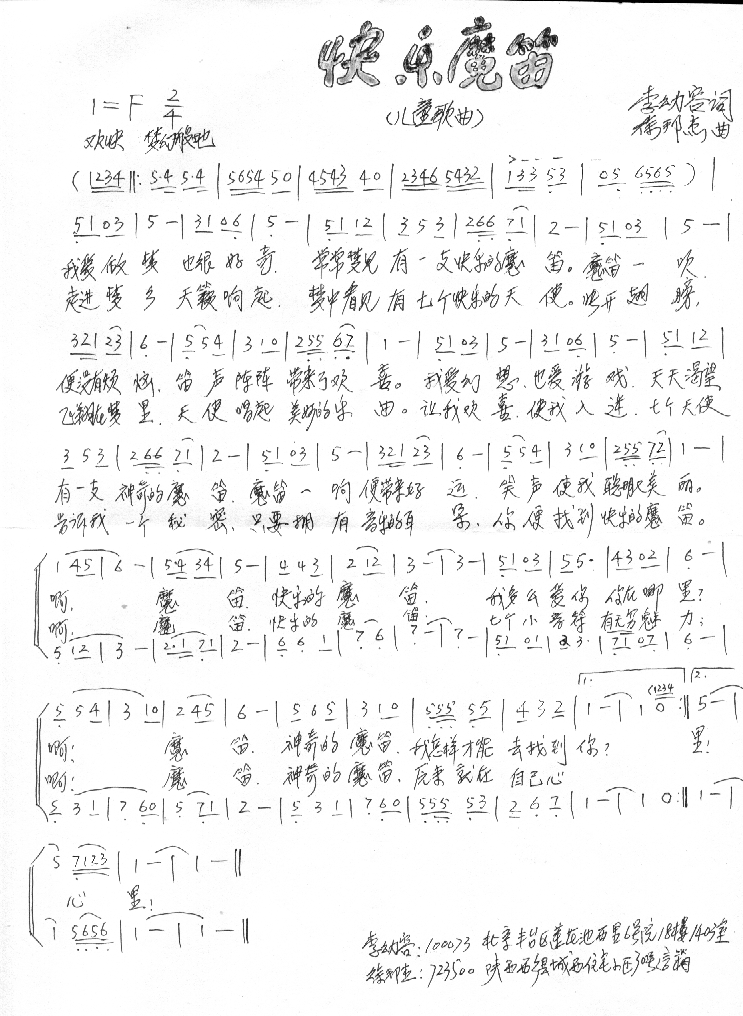 快乐魔笛
(儿童歌曲)
1=F 2/4
李幼容词
徐邦杰曲
欢快 梦幻般地
(1234 ‖: 5·4 5·4 | 5654 50 | 4543 40 | 2346 5432 | 133 53 | 05 6565 ) |
5103 | 5 - | 3106 | 5 - | 5112 | 353 | 266 71 | 2 - | 5103 | 5 - |
我爱做梦 也很好奇. 常常梦见有一支快乐的魔笛。魔笛一吹
走进梦乡 天籁响起. 梦中看见有七个快乐的天使。快开翅膀,
321 23 | 6 - | 554 | 310 | 255 67 | 1 - | 5103 | 5 - | 3106 | 5 - | 5112 |
便没有烦恼. 笛声阵阵带来了欢喜。我爱幻想.也爱游戏.天天渴望
飞翔在梦里. 天使唱起美妙的乐曲。让我欢喜.使我入迷.七个天使
353 | 266 71 | 2 - | 5103 | 5 - | 321 23 | 6 - | 554 | 310 | 255 72 | 1 - |
有一支神奇的魔笛.魔笛一响便带来好运.笑声使我聪明美丽。
告诉我一个秘密.只要拥有音乐的耳朵.你便找到快乐的魔笛。
1 45 | 6 - | 54 34 | 5 - | 443 | 2 12 | 3 - | 3 - | 5103 | 55· | 4302 | 6 - |
啊, 魔笛. 快乐的魔笛. 我多么爱你 你在哪里?
啊, 魔笛. 快乐的魔笛. 七个小音符 有无穷魅力;
5 12 | 3 - | 2·1 71 | 2 - | 661 | 76 | 7 - | 7 - | 51 01 | 23· | 7107 | 6 - |
1. 2.
(1234
554 | 310 | 2 45 | 6 - | 565 | 310 | 555 55 | 432 | 1 - | 10 :‖ 5 - |
啊; 魔笛. 神奇的魔笛.我怎样才能去找到你? 里!
啊; 魔笛. 神奇的魔笛.原来就在自己心
531 | 760 | 5 71 | 2 - | 531 | 760 | 555 53 | 267 | 1 - | 10 :‖ 1 - |
5 7123 | 1 - | 1 - ‖
心里!
1 5656 | 1 - | 1 - ‖
李幼容:100073 北京丰台区莲花池西里6号院18楼1403室
徐邦杰:723500 陕西西乡县城西住宅小区30号信箱